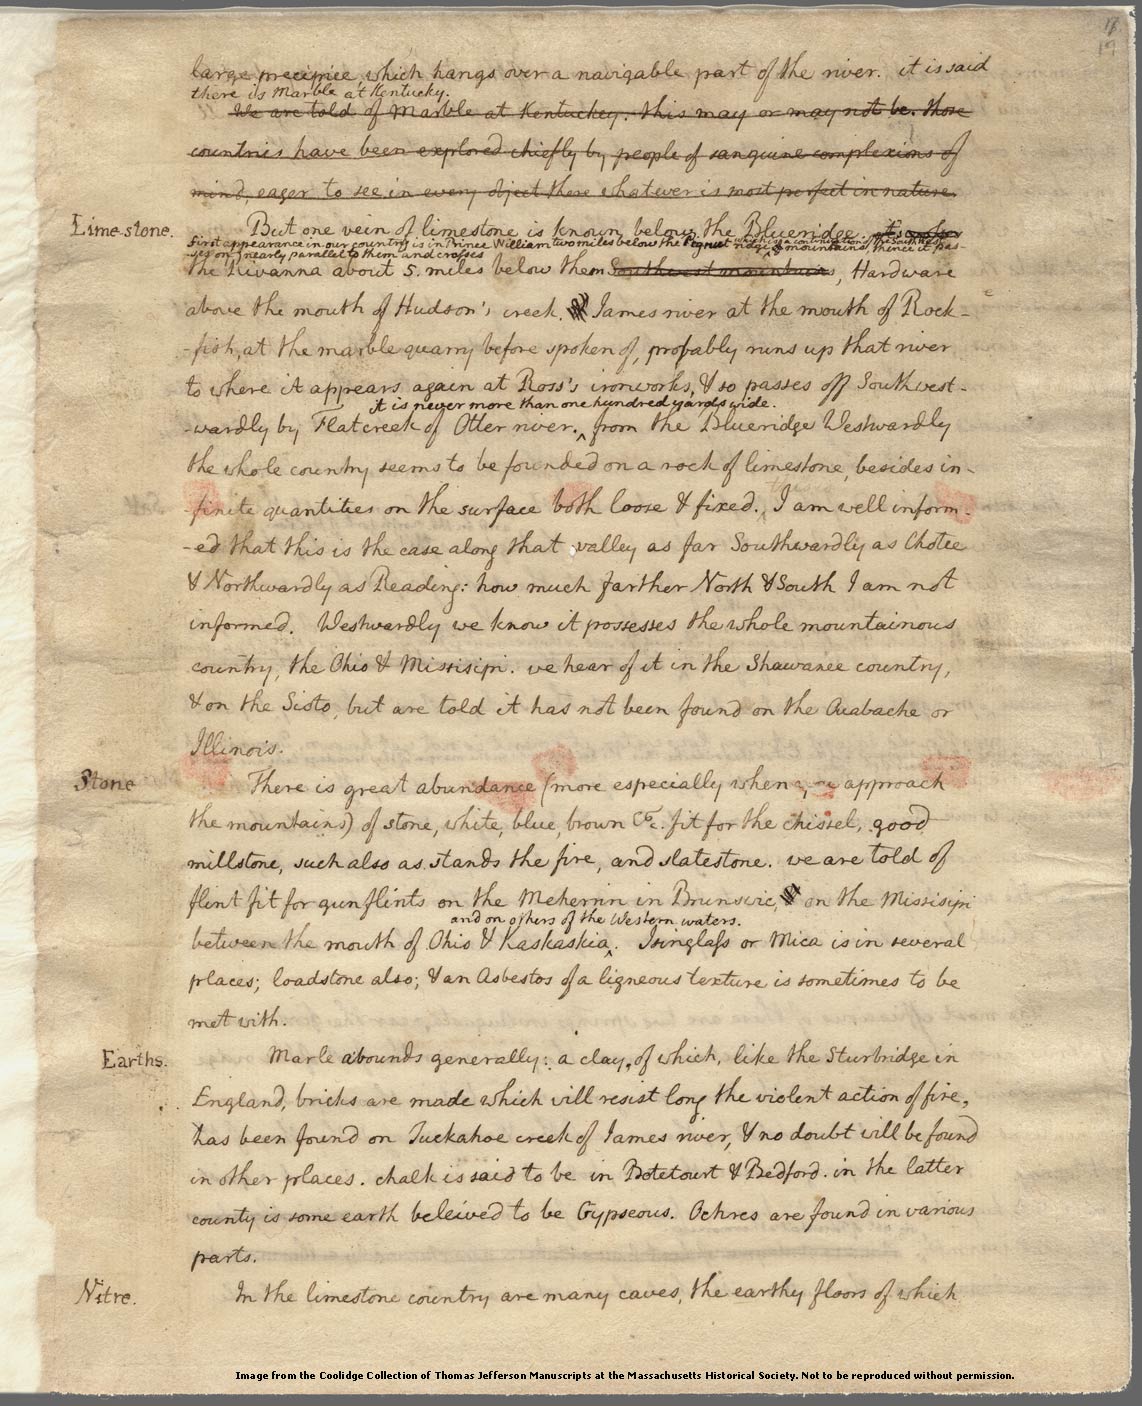 17
19
large precipice, which hangs over a navigable part of the river. it is said
there is Marble at Kentucky.
We are told of Marble at Kentuckey. this may or may not be. those
countries have been explored chiefly by people of sanguine complexions of
mind, eager to see in every object there whatever is most perfect in nature.
Limestone.
But one vein of limestone is known below the Blueridge. its
first appearance in our country is in Prince William two miles below the Pignut ridge of mountains, thence it pas-
which is a continuation of the
-ses on nearly parallel to them and crosses
the Rivanna about 5. miles below them Southwest mountains, Hardware
above the mouth of Hudson's creek. James river at the mouth of Rock-
-fish, at the marble quarry before spoken of, probably runs up that river
to where it appears again at Ross's ironworks, & so passes off Southwest-
it is never more than one hundred yards wide.
-wardly by Flatcreek of Otter river. ‸ from the Blueridge Westwardly
the whole country seems to be founded on a rock of limestone, besides in-
finite quantities on the surface both loose & fixed. I am well inform-
-ed that this is the case along that valley as far Southwardly as Chotee
& Northwardly as Reading: how much farther North & South I am not
informed. Westwardly we know it possesses the whole mountainous
country, the Ohio & Missisipi. we hear of it in the Shawanee country,
& on the Sioto, but are told it has not been found on the Ouabache or
Illinois.
Stone
There is great abundance (more especially when you approach
the mountains) of stone, white, blue, brown &c. fit for the chissel, good
millstone, such also as stands the fire, and slatestone. we are told of
flint fit for gunflints on the Meherrin in Brunswic, on the Missisipi
and on others of the Western waters.
between the mouth of Ohio & Kaskaskia‸. Isinglass or Mica is in several
places; loadstone also; & an Asbestos of a ligneous texture is sometimes to be
met with.
Earths.
Marle abounds generally: a clay, of which, like the Sturbridge in
England, bricks are made which will resist long the violent action of fire,
has been found on Tuckahoe creek of James river, & no doubt will be found
in other places. chalk is said to be in Botetourt & Bedford. in the latter
county is some earth beleived to be Gypseous. Ochres are found in various
parts.
Nitre.
In the limestone country are many caves, the earthy floors of which
Image from the Coolidge Collection of Thomas Jefferson Manuscripts at the Massachusetts Historical Society. Not to be reproduced without permission.